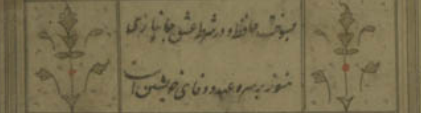 میسوخت حافظ و در شرط عشق جانبازی
هنوز بر سر عهد و وفای خویشتن است